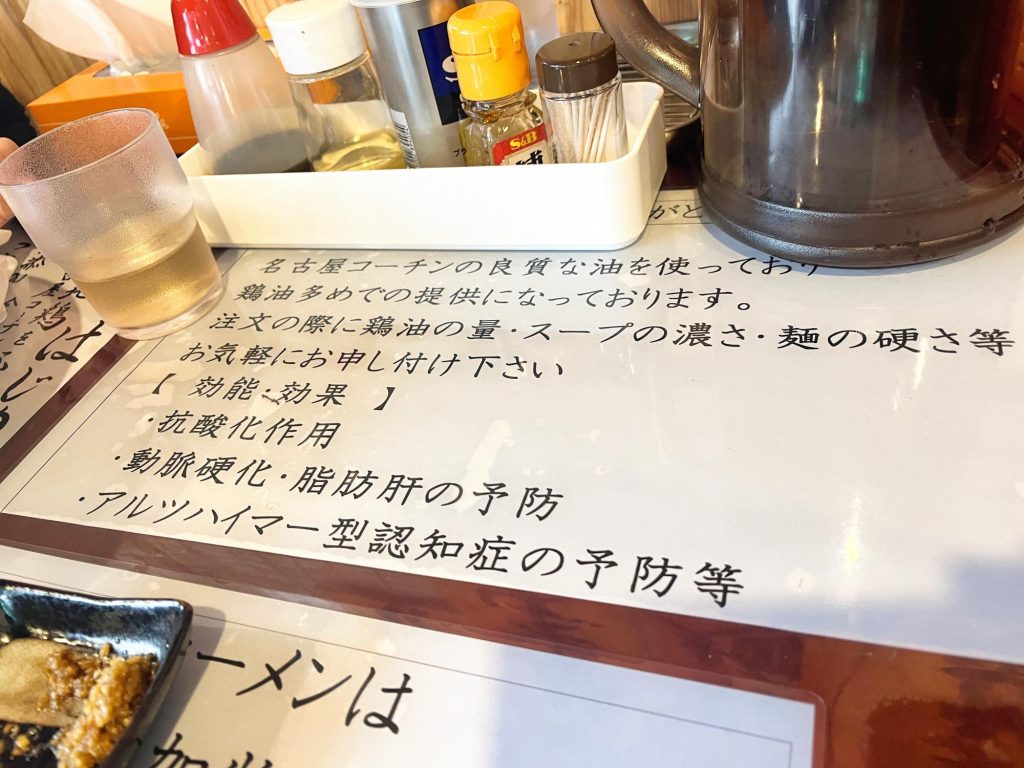 S&B
がと
名古屋コーチンの良質な油を使っており
鶏油多めでの提供になっております。
注文の際に鶏油の量・スープの濃さ・麺の硬さ等
お気軽にお申し付け下さい
【 効能・効果 】
・抗酸化作用
・動脈硬化・脂肪肝の予防
・アルツハイマー型認知症の予防等
ーメンは